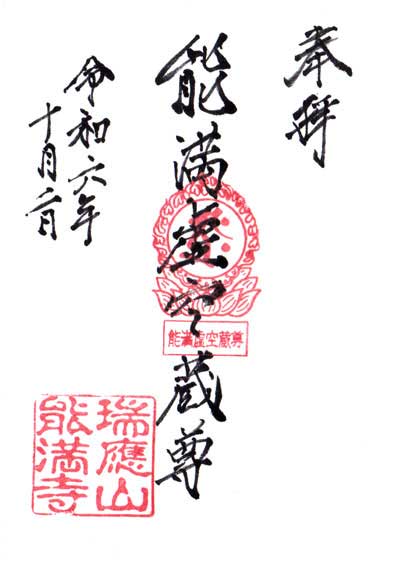 奉拝
能満虚空蔵尊
能満虚空蔵尊
令和六年
十月二日
瑞應山
能満寺